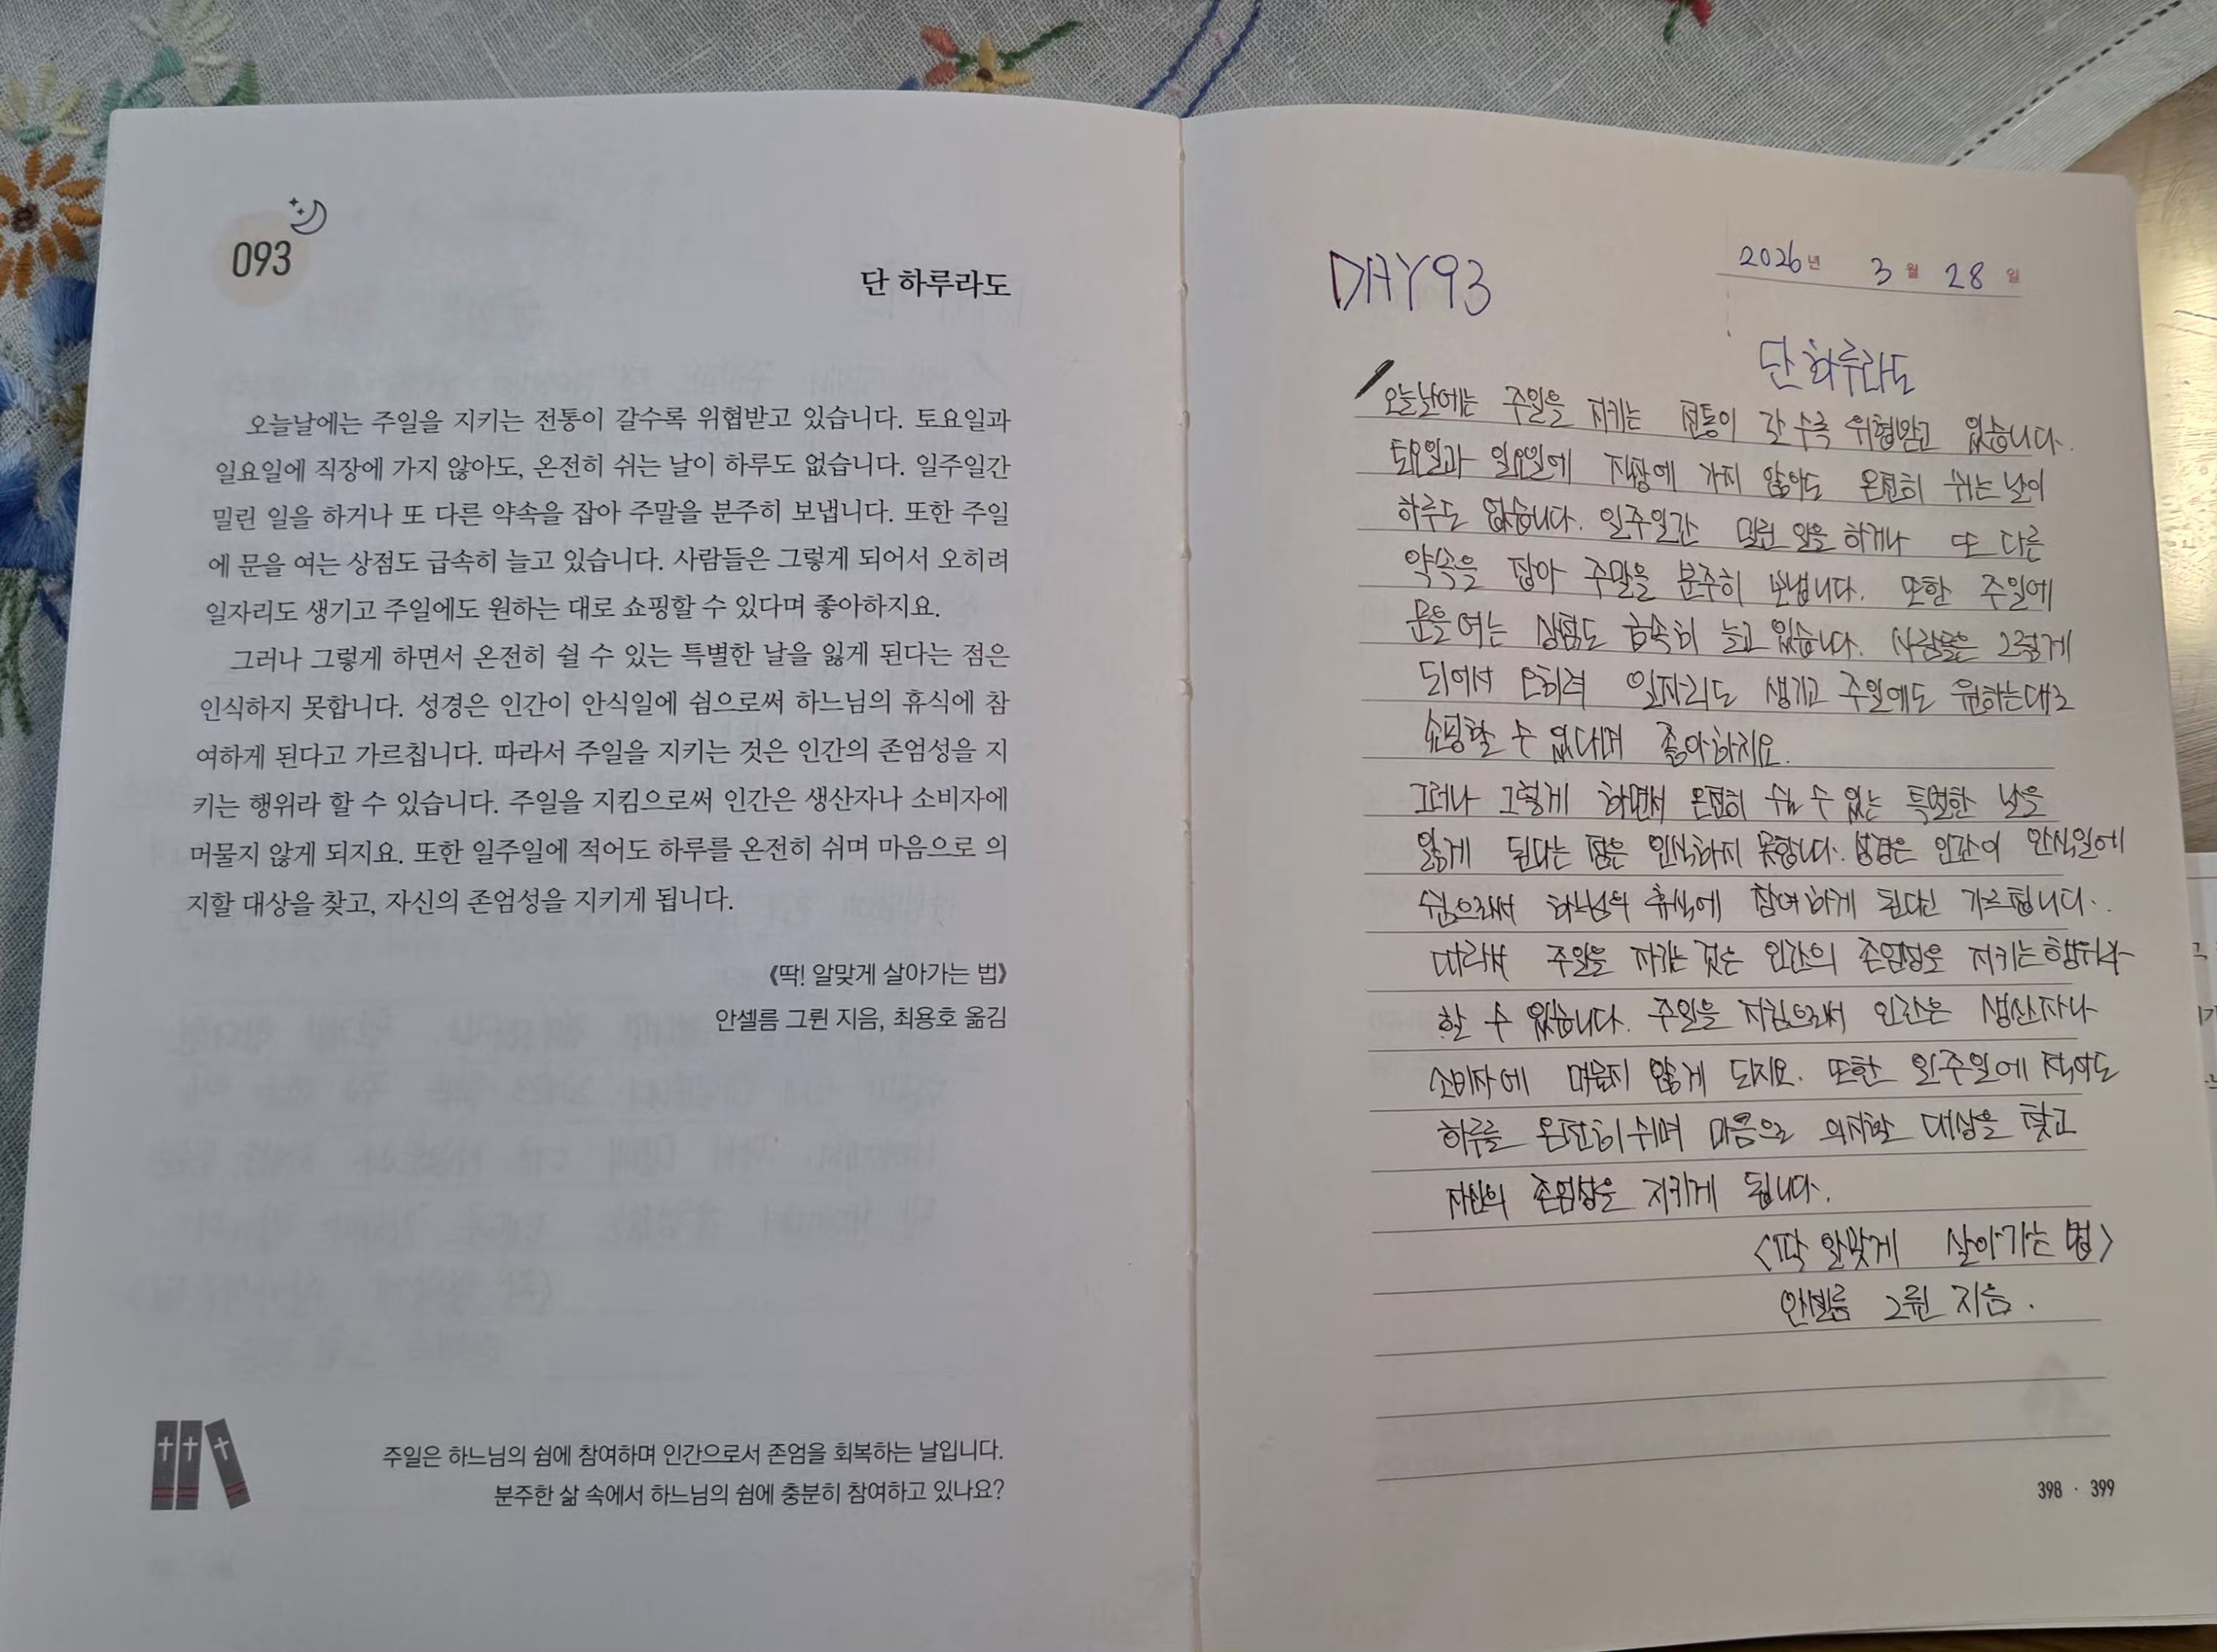 093
단 하루라도
오늘날에는 주일을 지키는 전통이 갈수록 위협받고 있습니다. 토요일과
일요일에 직장에 가지 않아도, 온전히 쉬는 날이 하루도 없습니다. 일주일간
밀린 일을 하거나 또 다른 약속을 잡아 주말을 분주히 보냅니다. 또한 주일
에 문을 여는 상점도 급속히 늘고 있습니다. 사람들은 그렇게 되어서 오히려
일자리도 생기고 주일에도 원하는 대로 쇼핑할 수 있다며 좋아하지요.
그러나 그렇게 하면서 온전히 쉴 수 있는 특별한 날을 잃게 된다는 점은
인식하지 못합니다. 성경은 인간이 안식일에 쉼으로써 하느님의 휴식에 참
여하게 된다고 가르칩니다. 따라서 주일을 지키는 것은 인간의 존엄성을 지
키는 행위라 할 수 있습니다. 주일을 지킴으로써 인간은 생산자나 소비자에
머물지 않게 되지요. 또한 일주일에 적어도 하루를 온전히 쉬며 마음으로 의
지할 대상을 찾고, 자신의 존엄성을 지키게 됩니다.
《딱! 알맞게 살아가는 법》
안셀름 그륀 지음, 최용호 옮김
주일은 하느님의 쉼에 참여하며 인간으로서 존엄을 회복하는 날입니다.
분주한 삶 속에서 하느님의 쉼에 충분히 참여하고 있나요?
DAY93
2026년 3월 28일
단 하루라도
오늘날에는 주일을 지키는 전통이 갈수록 위협받고 있습니다.
토요일과 일요일에 직장에 가지 않아도 온전히 쉬는 날이
하루도 없습니다. 일주일간 밀린 일을 하거나 또 다른
약속을 잡아 주말을 분주히 보냅니다. 또한 주일에
문을 여는 상점도 급속히 늘고 있습니다. 사람들은 그렇게
되어서 오히려 일자리도 생기고 주일에도 원하는대로
쇼핑할 수 있다며 좋아하지요.
그러나 그렇게 하면서 온전히 쉴 수 있는 특별한 날을
잃게 된다는 점은 인식하지 못합니다. 성경은 인간이 안식일에
쉼으로써 하느님의 휴식에 참여하게 된다고 가르칩니다.
따라서 주일을 지키는 것은 인간의 존엄성을 지키는 행위라
할 수 있습니다. 주일을 지킴으로써 인간은 생산자나
소비자에 머물지 않게 되지요. 또한 일주일에 적어도
하루를 온전히 쉬며 마음으로 의지할 대상을 찾고
자신의 존엄성을 지키게 됩니다.
<딱 알맞게 살아가는 법>
안셀름 그륀 지음.
398 · 399